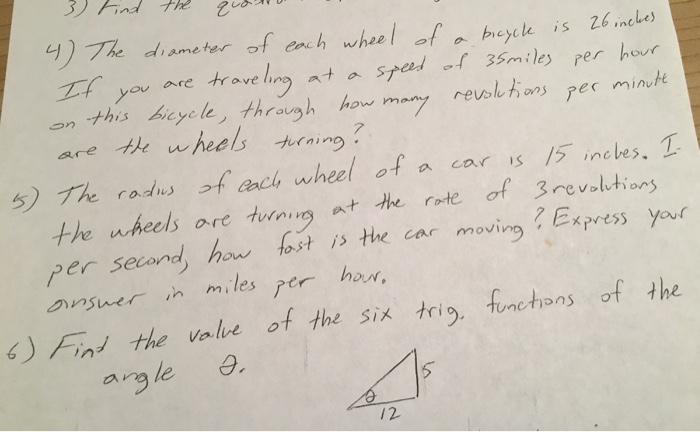 3) Find the
4) The diameter of each wheel of a bicycle is 26 inches
If you are traveling at a speed of 35miles per hour
on this bicycle, through how many revolutions per minute
are the wheels turning?
5) The radius of each wheel of a car is 15 inches. I
the wheels are turning at the rate of 3 revolutions
per second, how fast is the car moving? Express your
answer in miles per hour.
6) Find the value of the six trig. functions of the
angle θ.
5
θ
12